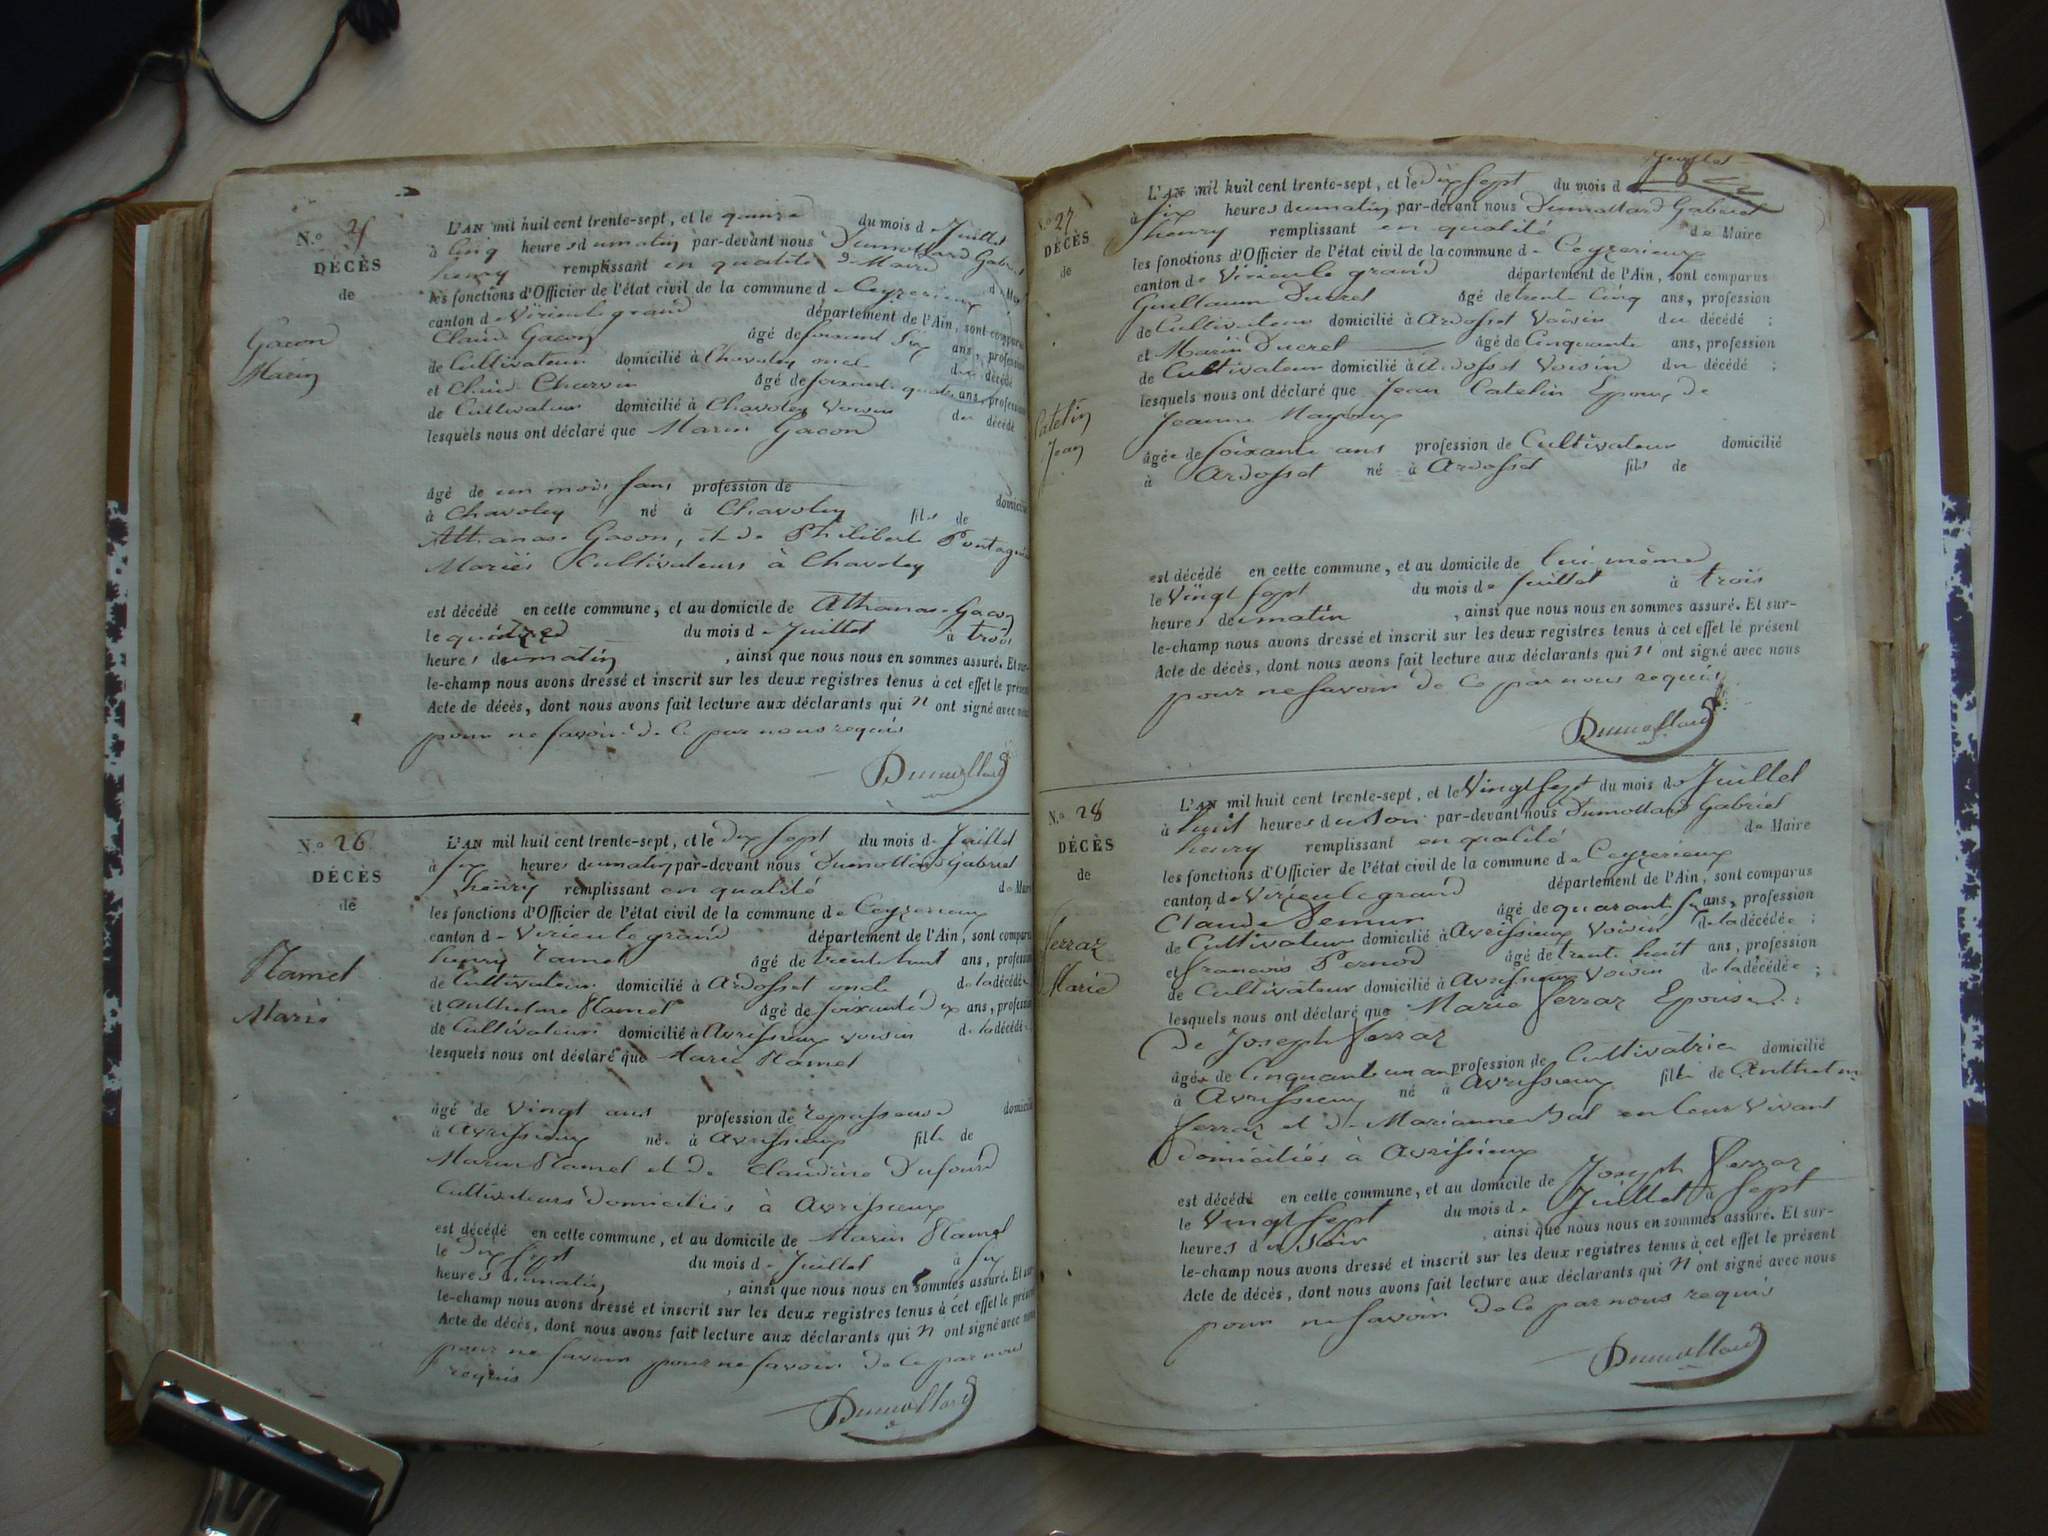 N.o 25
DÉCÈS
de
Gacon
Marin
L'AN mil huit cent trente-sept, et le quinze du mois d Juillet
à Cinq heures du matin par-devant nous Dumollard Gabriel
henry remplissant en qualité de Maire
les fonctions d'Officier de l'état civil de la commune de Ceyzerieux
canton de Virieulegrand département de l'Ain, sont comparus
Claude Gacon âgé de soixant Six ans, profession
de Cultivateur domicilié à Chavoley oncle du décédé
et Claude Charvin âgé de soixante quatre ans, profession
de Cultivateur domicilié à Chavoley Voisin du décédé
lesquels nous ont déclaré que Marin Gacon
âgé de un mois sans profession de domicilié
à Chavoley né à Chavoley fils de
Athanase Gacon, et de Philiberte
Mariés Cultivateurs à Chavoley
est décédé en cette commune, et au domicile de Athanase Gacon
le quinze du mois de Juillet à trois
heures du matin, ainsi que nous nous en sommes assuré. Et sur-
le-champ nous avons dressé et inscrit sur les deux registres tenus à cet effet le présent
Acte de décès, dont nous avons fait lecture aux déclarants qui n' ont signé avec nous
pour ne savoir de Ce par nous requis
Dumollard
N.o 26
DÉCÈS
de
Hamel
Marie
L'AN mil huit cent trente-sept, et le dix Sept du mois de Juillet
à six heures du matin par-devant nous Dumollard Gabriel
henry remplissant en qualité de Maire
les fonctions d'Officier de l'état civil de la commune de Ceyzerieux
canton de Virieulegrand département de l'Ain, sont comparus
henry hamel âgé de trente huit ans, profession
de Cultivateur domicilié à Ardosset oncle de la décédée
et anthelme Hamel âgé de soixante dix ans, profession
de Cultivateur domicilié à Avrissieux voisin de la décédée
lesquels nous ont déclaré que Marie Hamel
âgé de Vingt ans profession de repasseuse domicilié
à Avrissieux née à Avrissieux fille de
Marin Hamel et de Claudine Dufourd
Cultivateurs domiciliés à Avrissieux
est décédé en cette commune, et au domicile de Marin Hamel
le dix sept du mois de Juillet à six
heures du matin, ainsi que nous nous en sommes assuré. Et sur-
le-champ nous avons dressé et inscrit sur les deux registres tenus à cet effet le présent
Acte de décès, dont nous avons fait lecture aux déclarants qui n' ont signé avec nous
pour ne savoir pour ne savoir de Ce par nous
requis
Dumollard
N.o 27
DÉCÈS
de
Catelin
Jean
L'AN mil huit cent trente-sept, et le dix sept du mois d
à six heures du matin par-devant nous Dumollard Gabriel
henry remplissant en qualité de Maire
les fonctions d'Officier de l'état civil de la commune de Ceyzerieux
canton de Virieulegrand département de l'Ain, sont comparus
Guillaume Ducret âgé de trente Cinq ans, profession
de Cultivateur domicilié à Ardosset Voisin du décédé ;
et Marin Ducret âgé de Cinquante ans, profession
de Cultivateur domicilié à Ardosset Voisin du décédé ;
lesquels nous ont déclaré que Jean Catelin Epoux de
Jeanne
âgé de soixante ans profession de Cultivateur domicilié
à Ardosset né à Ardosset fils de
est décédé en cette commune, et au domicile de lui même
le Vingt Sept du mois de Juillet à trois
heures du matin, ainsi que nous nous en sommes assuré. Et sur-
le-champ nous avons dressé et inscrit sur les deux registres tenus à cet effet le présent
Acte de décès, dont nous avons fait lecture aux déclarants qui n' ont signé avec nous
pour ne savoir de Ce par nous requis
Dumollard
N.o 28
DÉCÈS
de
Ferraz
Marie
L'AN mil huit cent trente-sept, et le Vingt Sept du mois de Juillet
à huit heures du soir par-devant nous Dumollard Gabriel
henry remplissant en qualité de Maire
les fonctions d'Officier de l'état civil de la commune de Ceyzerieux
canton de Virieulegrand département de l'Ain, sont comparus
Claude Semur âgé de quarant six ans, profession
de Cultivateur domicilié à Avrissieux Voisin de la décédée ;
et françois Pernod âgé de trente huit ans, profession
de Cultivateur domicilié à Avrissieux Voisin de la décédée ;
lesquels nous ont déclaré que Marie Ferraz Epouse
de Joseph Ferraz
âgée de Cinquante un an profession de Cultivatrice domicilié
à Avrissieux né à Avrissieux fille de Anthelme
Ferraz et de Marianne Bal en leur Vivant
domiciliés à Avrissieux
est décédé en cette commune, et au domicile de Joseph Ferraz
le Vingt Sept du mois de Juillet à Sept
heures du soir, ainsi que nous nous en sommes assuré. Et sur-
le-champ nous avons dressé et inscrit sur les deux registres tenus à cet effet le présent
Acte de décès, dont nous avons fait lecture aux déclarants qui n' ont signé avec nous
pour ne savoir de Ce par nous requis
Dumollard